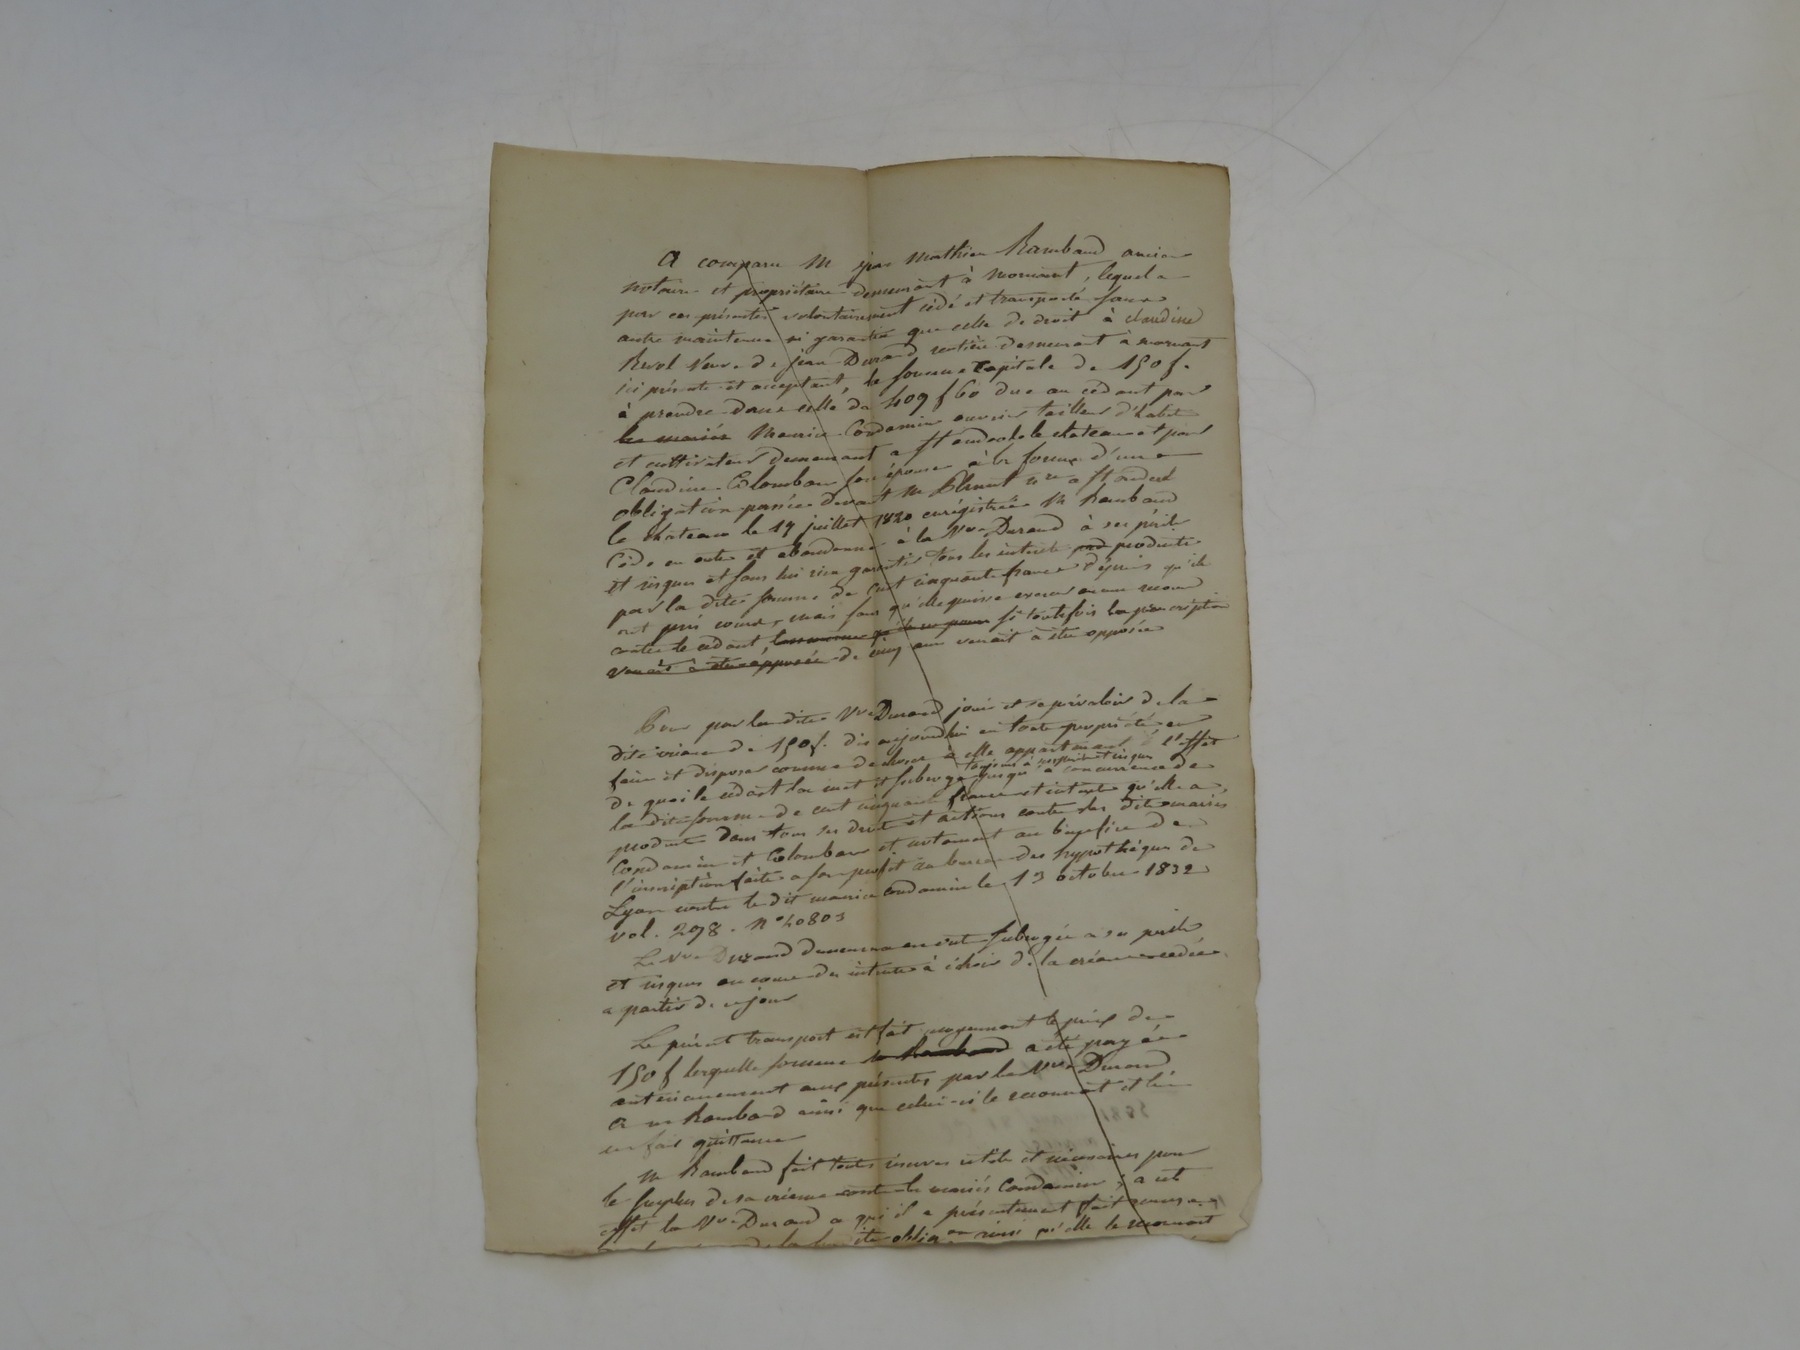 A comparu M jean Mathieu Rambaud ancien
notaire et propriétaire demeurant à Mornant, lequel a
par ces présentes volontairement cédé et transporté sans
autre maintenue ni garantie que celle de droit à claudine
Revol Veuve de jean Durand rentière demeurant à mornant
ici présente et acceptant, la somme Capitale de 150 f.
à prendre dans celle de 409 f 60 due au cédant par
les mariés Maurice Condamin ouvrier tailleur d'habits
et cultivateur demeurant a St andeol le chateau et par
Claudine Colomban son épouse à la forme d'une
obligation passée devant M re a St andeol
le chateau le 19 juillet 1820 enrégistrée M Rambaud
Cède en outre et abandonne à la Vve Durand à ses périls
et risques et sans lui rien garantir tous les interets produits
par la dite somme de Cent cinquante francs depuis qu'ils
ont pris cours, mais sans qu'elle puisse exercer aucun recours
contre le cédant, si toutefois la prescription
venait à etre opposée de cinq ans venait à etre opposée
Pour par la dite Vve Durand jouir et se prévaloir de la
dite créance de 150 f. dès aujourdhui en toute propriété en
faire et disposer comme de chose à elle appartenant à l'effet
toujours à ses périls et risques
de quoi le cédant la met et subroge jusqu'à concurrence de
la dite somme de cent cinquante francs et interets qu'elle a
produits dans tous ses droits et actions contre les dits mariés
Condamin et Colomban et notament au bénéfice de
l'inscription faite a son profit au bureau des hypothèques de
Lyon contre le dit maurice condamin le 13 octobre 1832
vol. 298. No 40803
La Vve Durand demeurera en outre subrogée a ses périls
et risques au cours des intérets à échoir de la créance cédée
a partir de ce jour
Le présent transport est fait moyennant le prix de
150 f lesquelle somme Rambaud a été payée
antérieurement aux présentes par la Vve Durand
à M Rambaud ainsi que celui-ci le reconnait et lui
en fait quittance
M Rambaud fait toutes réserves utiles et nécessaires pour
le surplus de sa créance contre les mariés Condamin, a cet
effet la Vve Durand a qui il a présentement fait remise
de la obligation ainsi qu'elle le reconnait